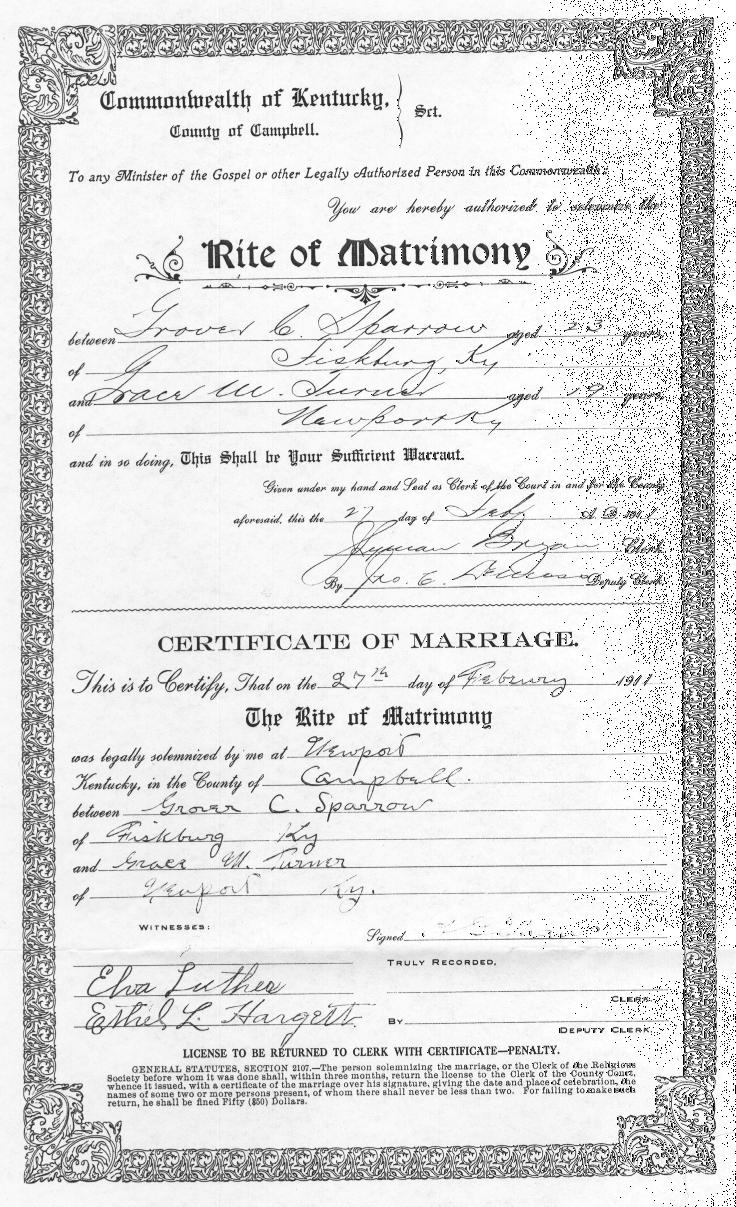 Commonwealth of Kentucky,
County of Campbell.
Sct.
To any Minister of the Gospel or other Legally Authorized Person in this Commonwealth:
You are hereby authorized to solemnize the
Rite of Matrimony
between Grover C. Sparrow aged 23 years,
of Fiskburg, Ky
and Grace M. Turner aged 19 years,
of Newport Ky
and in so doing, This Shall be Your Sufficient Warrant.
Given under my hand and Seal as Clerk of the Court in and for the County
aforesaid, this the 27 day of Feby A. D. 1911
Bryan Clerk
By Jno. C. Deputy Clerk
CERTIFICATE OF MARRIAGE.
This is to Certify, That on the 27th day of Februry 1911
The Rite of Matrimony
was legally solemnized by me at Newport
Kentucky, in the County of Campbell.
between Grover C. Sparrow
of Fiskburg Ky
and Grace M. Turner
of Newport Ky.
WITNESSES:
Signed
TRULY RECORDED,
Elva Luther
CLERK.
Ethel L. Hargett.
BY
DEPUTY CLERK.
LICENSE TO BE RETURNED TO CLERK WITH CERTIFICATE—PENALTY.
GENERAL STATUTES, SECTION 2107.—The person solemnizing the marriage, or the Clerk of the Religious
Society before whom it was done shall, within three months, return the license to the Clerk of the County Court,
whence it issued, with a certificate of the marriage over his signature, giving the date and place of celebration, the
names of some two or more persons present, of whom there shall never be less than two. For failing to make such
return, he shall be fined Fifty ($50) Dollars.